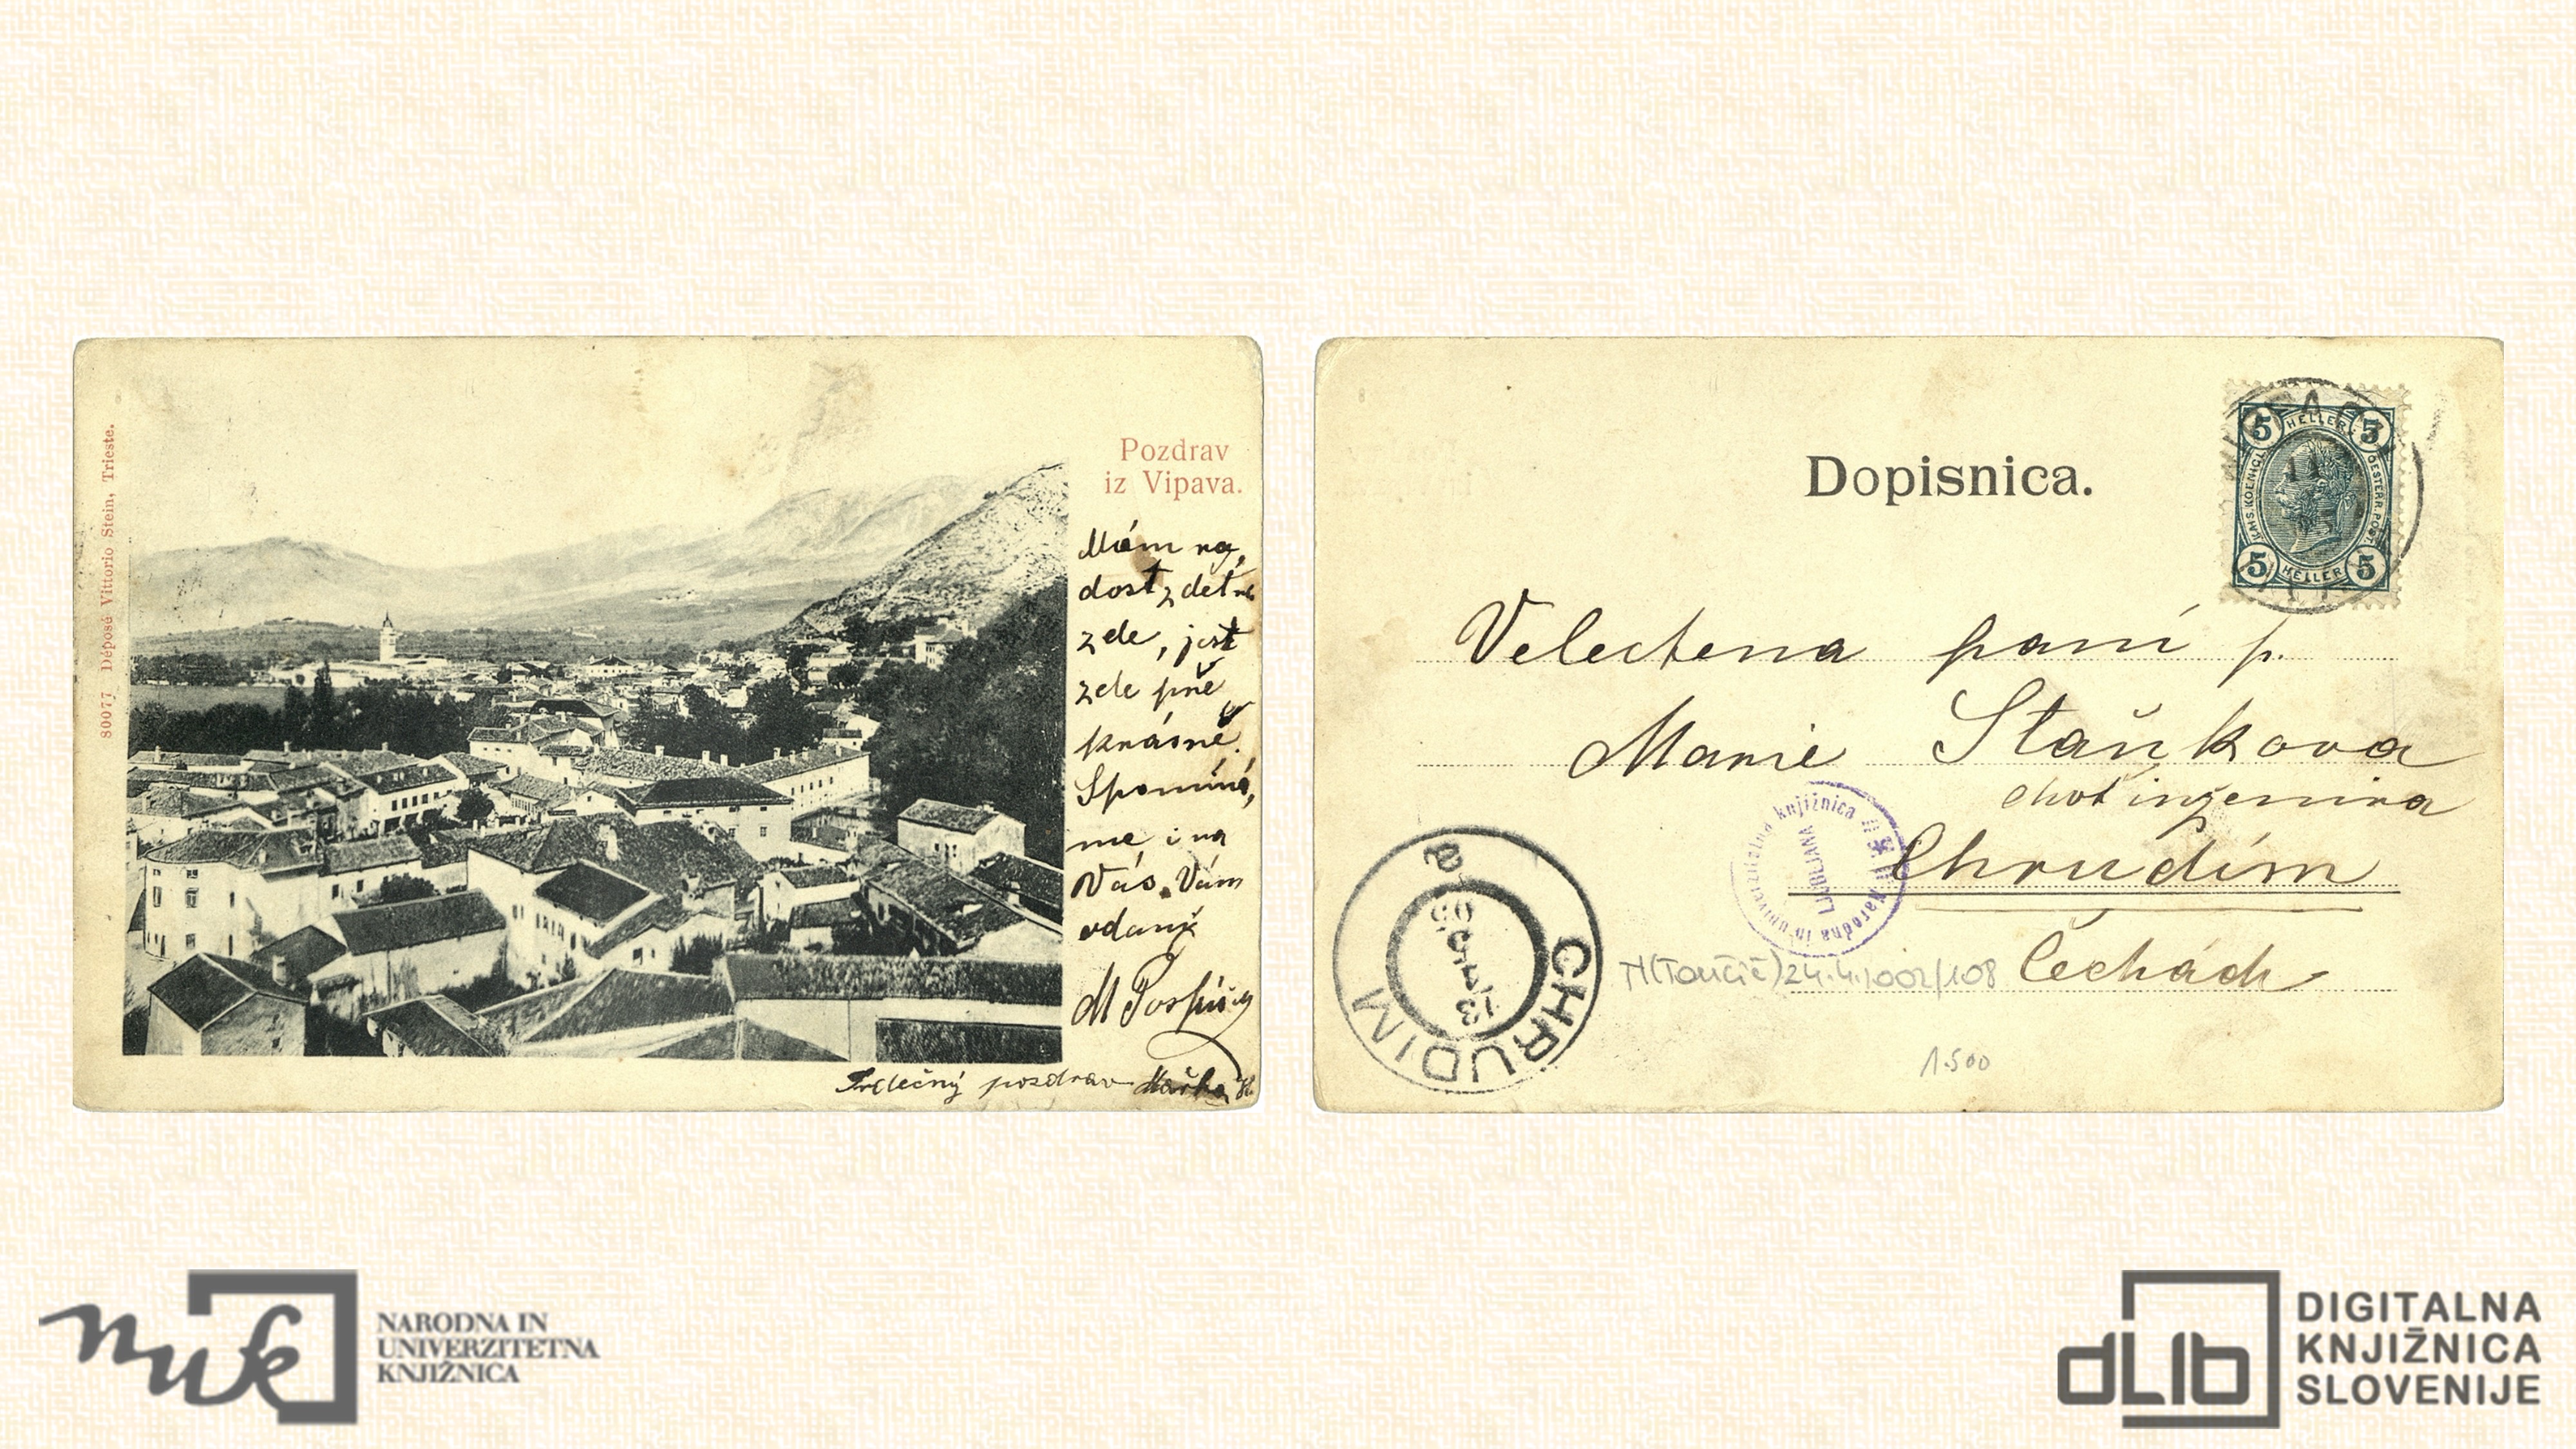 80077 Déposé Vittorio Stein, Trieste.
Pozdrav
iz Vipava.
Mám ra,
dost z
zde, jest
zde pře
krásně.
Spomíná,
me i na
Vás. Vám
odaný
M Pospíšil
Srdečný pozdrav Mařka
Dopisnica.
5 HELLER 5
KAIS. KOENIGL. OESTERR. POST
5 HELLER 5
Velectena paní p.
Marie Staňkova
chot inženira
Chrudim
Čechách
CHRUDIM
13 4 05
Narodna in univerzitetna knjižnica
LJUBLJANA
24.4.1002/108
1.500
nuk
NARODNA IN
UNIVERZITETNA
KNJIŽNICA
dLIb
DIGITALNA
KNJIŽNICA
SLOVENIJE